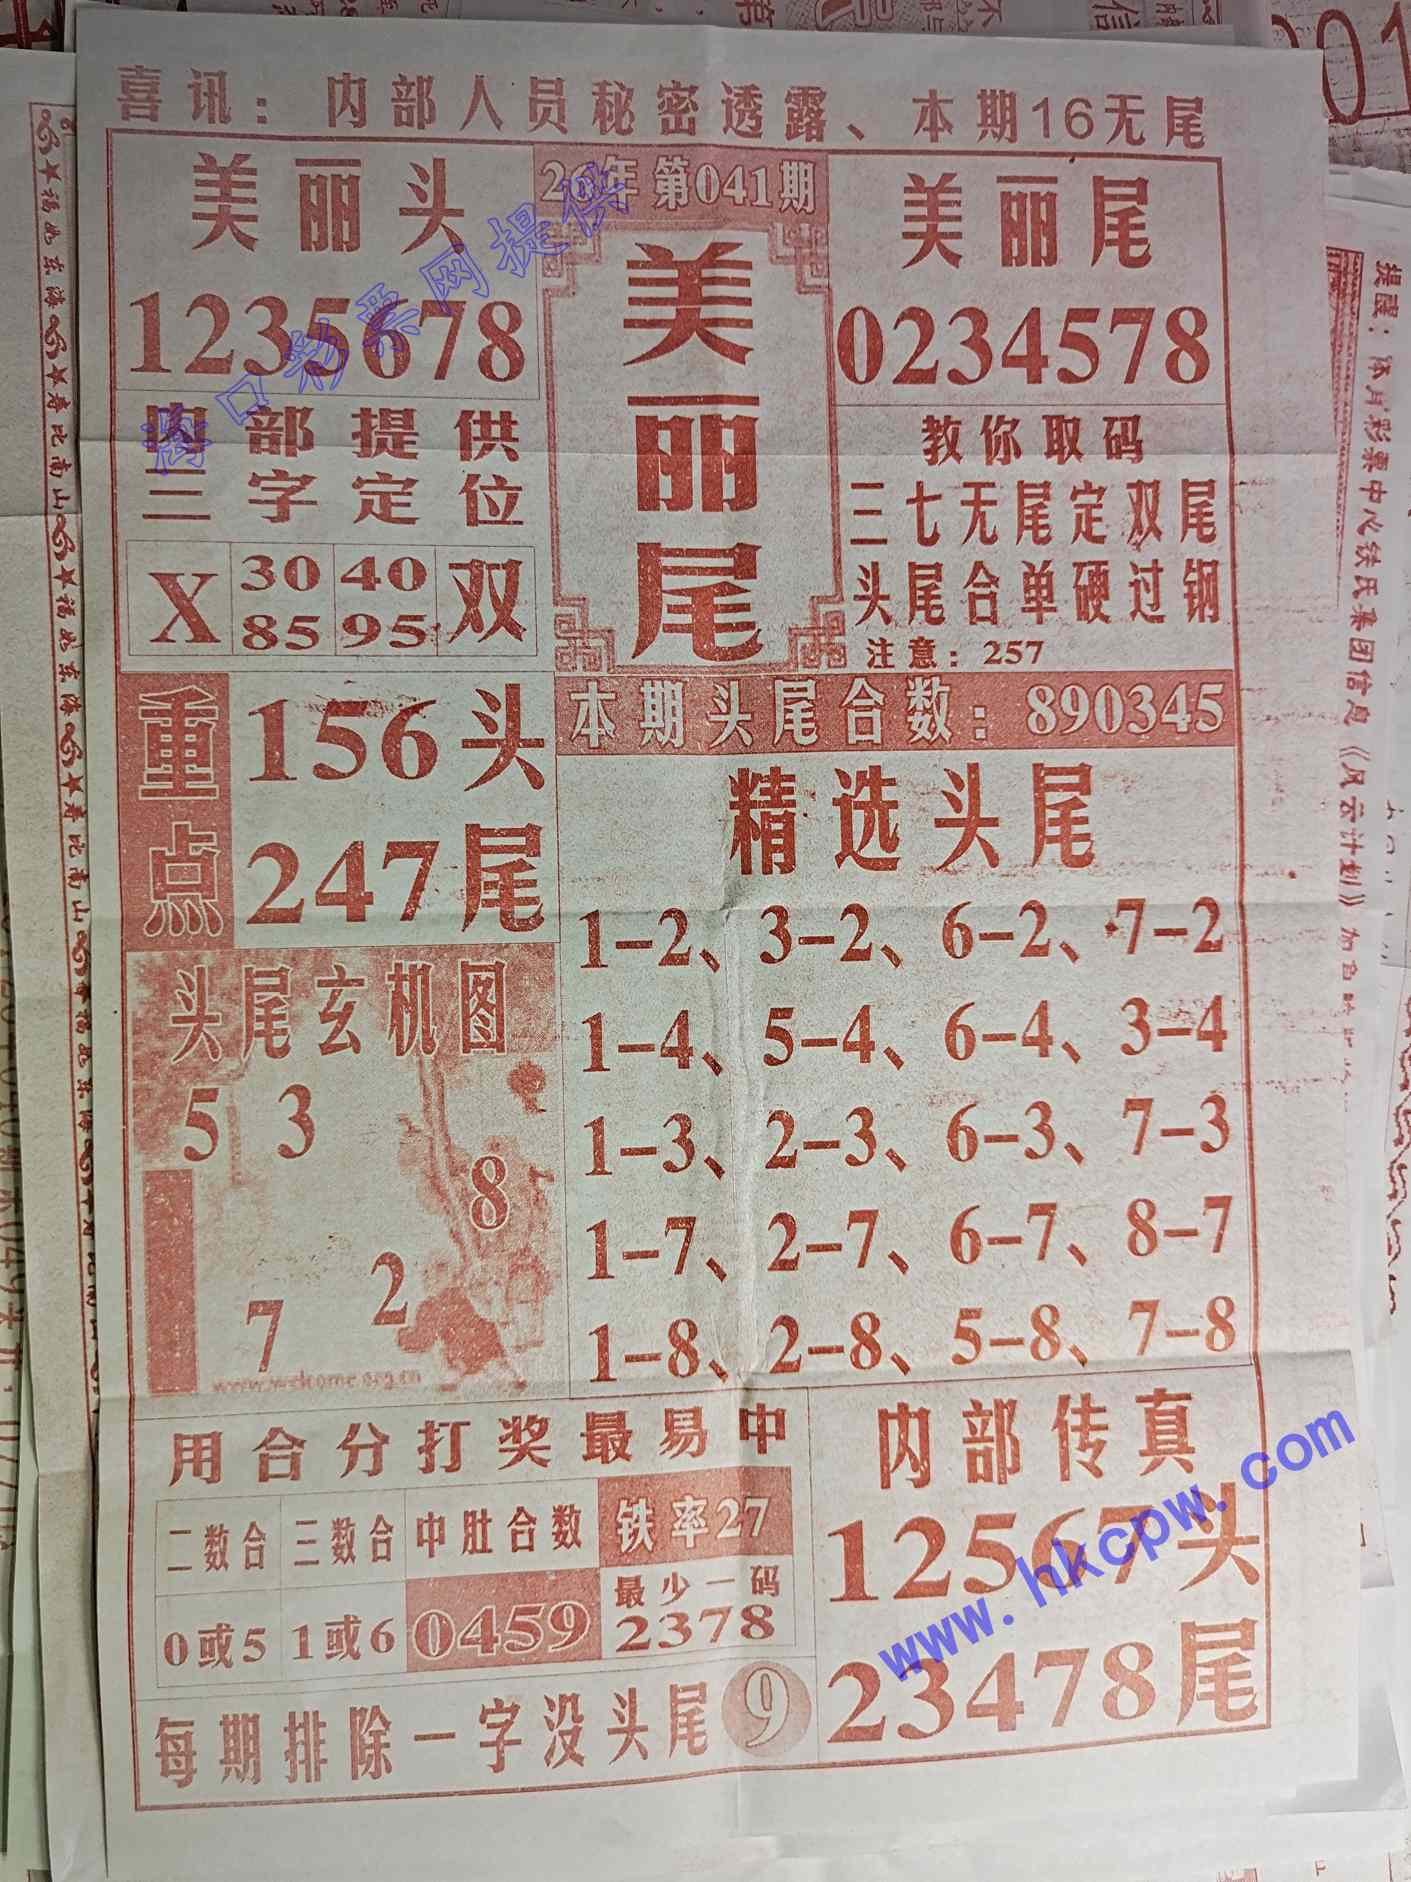 喜讯：内部人员秘密透露、本期16无尾
美丽头
1235678
26年第041期
美丽尾
美丽尾
0234578
内部提供
三字定位
X 30 40 双
85 95
教你取码
三七无尾定双尾
头尾合单硬过钢
注意：257
重点
156头
247尾
本期头尾合数：890345
精选头尾
1-2、3-2、6-2、7-2
1-4、5-4、6-4、3-4
1-3、2-3、6-3、7-3
1-7、2-7、6-7、8-7
1-8、2-8、5-8、7-8
头尾玄机图
5 3
8
2
7
www.welcome.org.cn
用合分打奖最易中
二数合 三数合 中肚合数 铁率27
0或5 1或6 0459 最少一码
2378
每期排除一字没头尾 9
内部传真
12567头
23478尾
海口彩票网提供
www.hkcpw.com
福如东海
寿比南山
福如东海
寿比南山
提醒：体育彩票中心铁氏集团信息《风云计划》